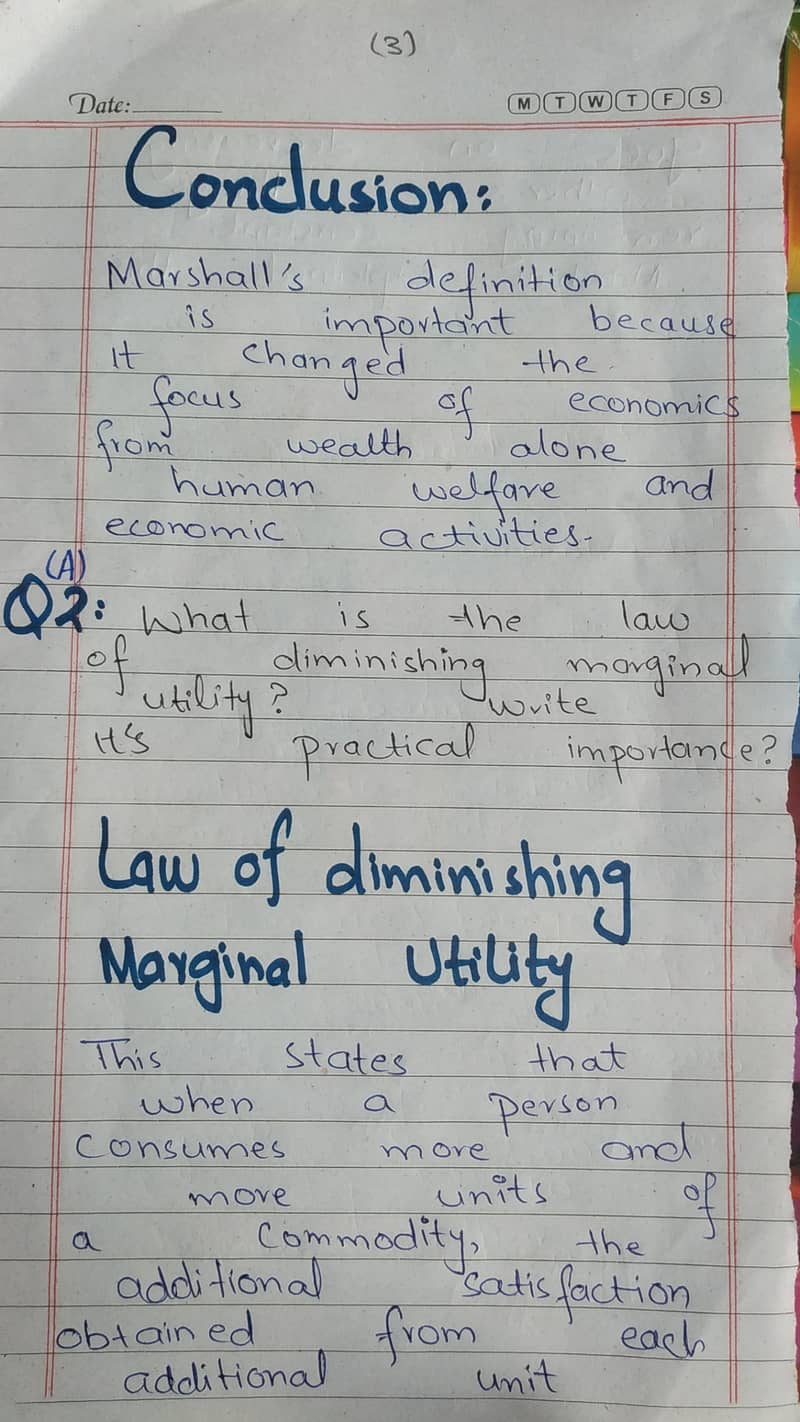 (3)
Date: M T W T F S
Conclusion:
Marshall's definition
is important because
It changed the
focus of economics
from wealth alone
human welfare and
economic activities.
(A)
Q2: What is the law
of diminishing marginal
utility? write
it's practical importance?
Law of diminishing
Marginal Utility
This states that
when a person
consumes more and
more units of
a commodity, the
additional satisfaction
obtained from each
additional unit